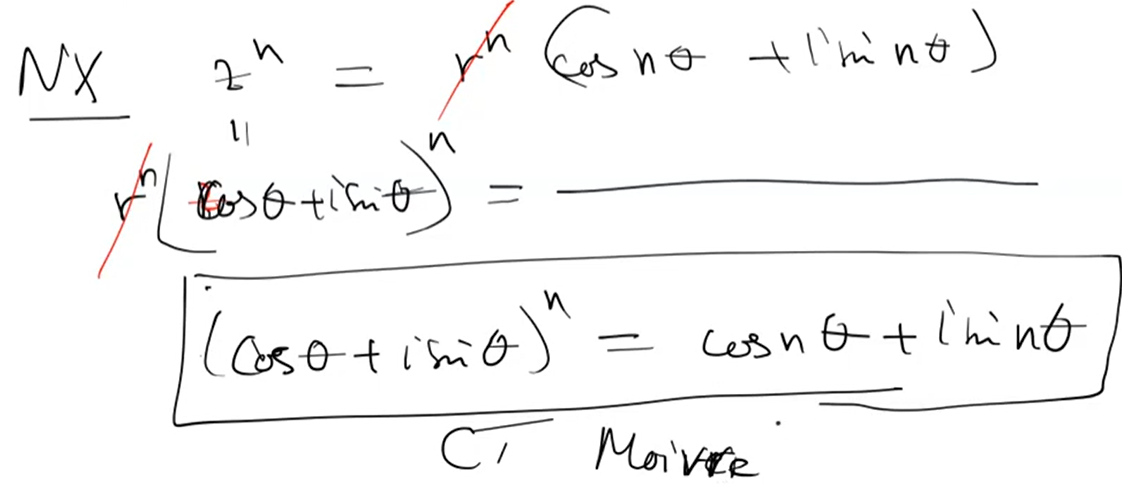 NX zⁿ = rⁿ (cos nθ + i sin nθ)
॥
rⁿ (cosθ + i sinθ)ⁿ = ————
(cosθ + i sinθ)ⁿ = cos nθ + i sin nθ
CT Moivre